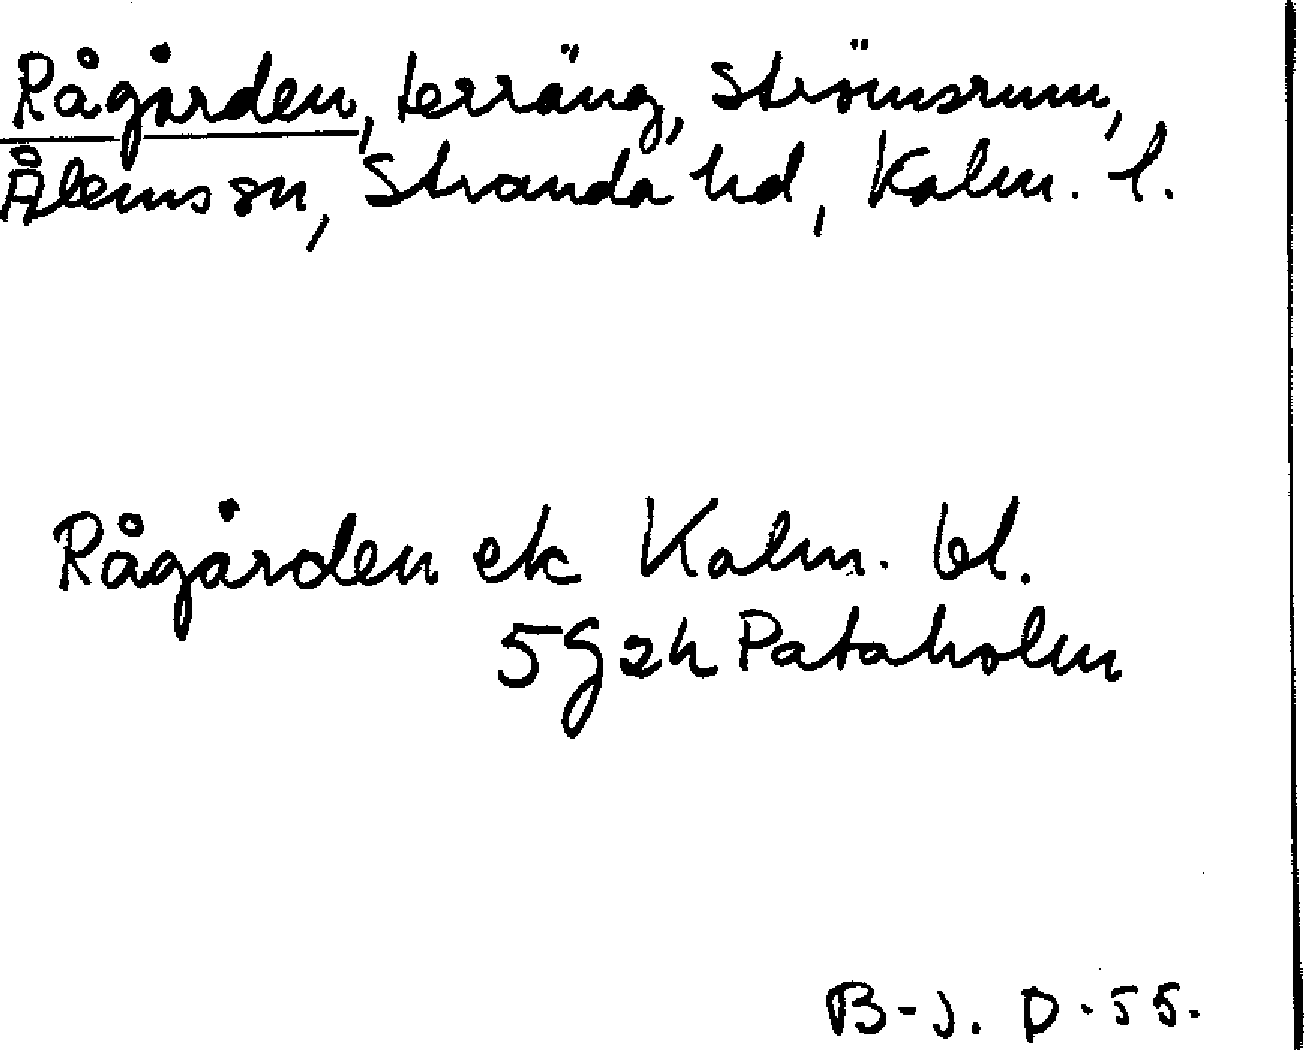 Rågården, terräng, Strömsrum,
Ålems sn, Stranda hd, Kalm. l.
Rågården ek Kalm. bl.
5g2h Pataholm
B-J. D. 55.